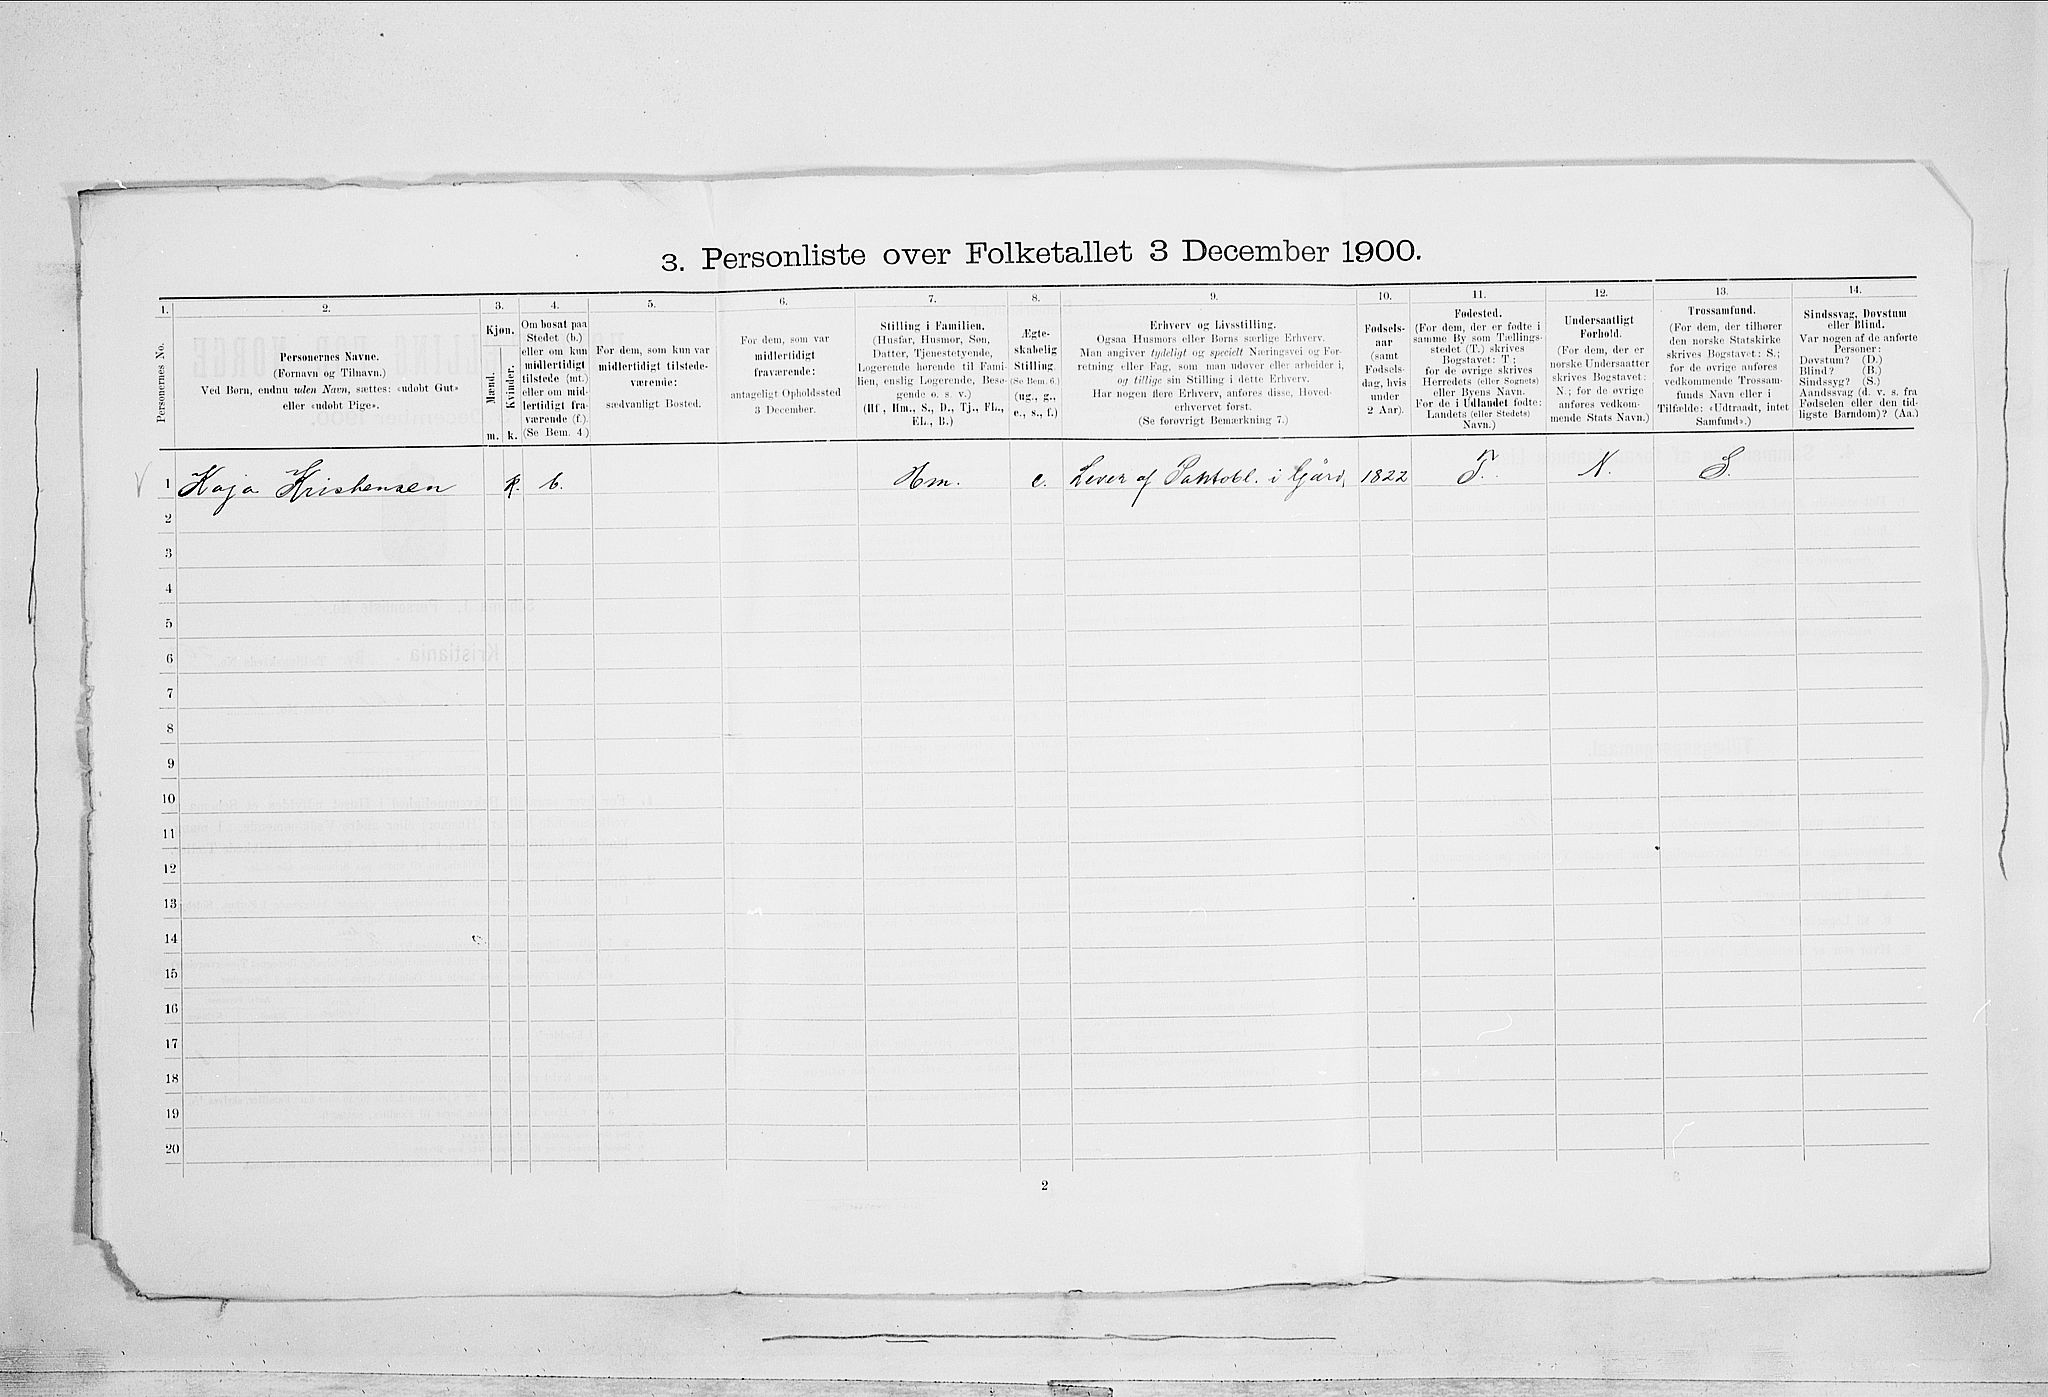 3. Personliste over Folketallet 3 December 1900.
1.
2.
3.
4.
5.
6.
7.
8.
9.
10.
11.
12.
13.
14.
Personernes No.
Personernes Navne.
(Fornavn og Tilnavn.)
Ved Børn, endnu uden Navn, sættes: «udøbt Gut»
eller «udøbt Pige».
Kjøn.
Mænd.
Kvinder.
m. k.
Om bosat paa
Stedet (b.)
eller om kun
midlertidigt
tilstede (mt.)
eller om mid-
lertidigt fra-
værende (f.).
(Se Bem. 4.)
For dem, som kun var
midlertidigt tilstede-
værende:
sædvanligt Bosted.
For dem, som var
midlertidigt
fraværende:
antageligt Opholdssted
3 December.
Stilling i Familien.
(Husfar, Husmor, Søn,
Datter, Tjenestetyende,
Logerende hørende til Fami-
lien, enslig Logerende, Besø-
gende o. s. v.)
(Hf., Hm., S., D., Tj., FL.,
EL., B.)
Ægte-
skabelig
Stilling.
(Se Bem. 6.)
(ug., g.,
e., s., f.)
Erhverv og Livsstilling.
Ogsaa Husmors eller Børns særlige Erhverv.
Man angiver tydeligt og specielt Næringsvei og For-
retning eller Fag, som man udøver eller arbeider i,
og tillige sin Stilling i dette Erhverv.
Har nogen flere Erhverv, anføres disse, Hoved-
erhvervet først.
(Se forøvrigt Bemærkning 7.)
Fødsels-
aar
(samt
Fødsels-
dag, hvis
under
2 Aar).
Fødested.
(For dem, der er fødte i
samme By som Tællings-
stedet (T.) skrives
Bogstavet: T;
for de øvrige skrives
Herredets (eller Sognets)
eller Byens Navn.
For de i Udlandet fødte:
Landets (eller Stedets)
Navn.)
Undersaatligt
Forhold.
(For dem, der er
norske Undersaatter
skrives Bogstavet:
N.; for de øvrige
anføres vedkom-
mende Stats Navn.)
Trossamfund.
(For dem, der tilhører
den norske Statskirke
skrives Bogstavet: S.;
for de øvrige anføres
vedkommende Trossam-
funds Navn eller i
Tilfælde: «Udtraadt, intet
Samfund».)
Sindssvag, Døvstum
eller Blind.
Var nogen af de anførte
Personer:
Døvstum? (D.)
Blind? (B.)
Sindssyg? (S.)
Aandssvag (d. v. s. fra
Fødselen eller den tid-
ligste Barndom)? (Aa.)
1 Kaja Kristensen k. b. Hm. e. Lever af Pantobl. i Gård, 1822 T. N. S.
2
3
4
5
6
7
8
9
10
11
12
13
14
15
16
17
18
19
20
2